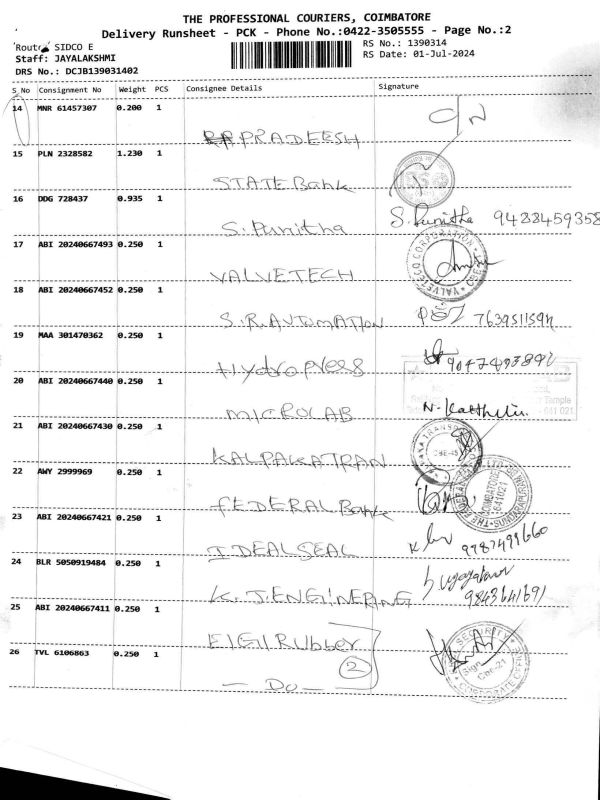 THE PROFESSIONAL COURIERS, COIMBATORE
Delivery Runsheet - PCK - Phone No.:0422-3505555 - Page No.:2
Route: SIDCO E
RS No.: 1390314
Staff: JAYALAKSHMI
RS Date: 01-Jul-2024
DRS No.: DCJB139031402
S No Consignment No Weight PCS Consignee Details Signature
14 MNR 61457307 0.200 1
PRADEESH
15 PLN 2328582 1.230 1
STATE Bank
16 DDG 728437 0.935 1
S. Punitha S. Punitha 9488459358
17 ABI 20240667493 0.250 1
VALVETECH
18 ABI 20240667452 0.250 1
S.R. AUTOMATION
19 MAA 301470362 0.250 1
Hydropress
20 ABI 20240667440 0.250 1
MICROLAB
21 ABI 20240667430 0.250 1
KALPAKA TRAN
22 AWY 2999969 0.250 1
FEDERAL Bank
23 ABI 20240667421 0.250 1
IDEAL SEAL 9787499660
24 BLR 5050919484 0.250 1
K. J. ENGINERING 9843641691
25 ABI 20240667411 0.250 1
ElGi Rubber
26 TVL 6106863 0.250 1
2
— Do —